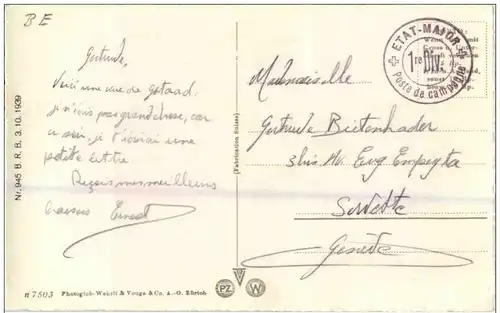 BE
Gertrude,
Voici une vue de Gstaad.
je n'écris pas grand chose, car
ce soir, je t'écrirai une
petite lettre.
Reçois mes meilleurs
baisers Ernest
Nr. 945 B. R. B. 3. 10. 1939
n 7503 Photoglob-Wehrli & Vouga & Co. A.-G. Zürich
(Fabrication Suisse)
PZ
W
ETAT-MAJOR
1re Div.
Poste de campagne
Mademoiselle
Gertrude
3bis Av. Eug Empeyta
Servette
Genève